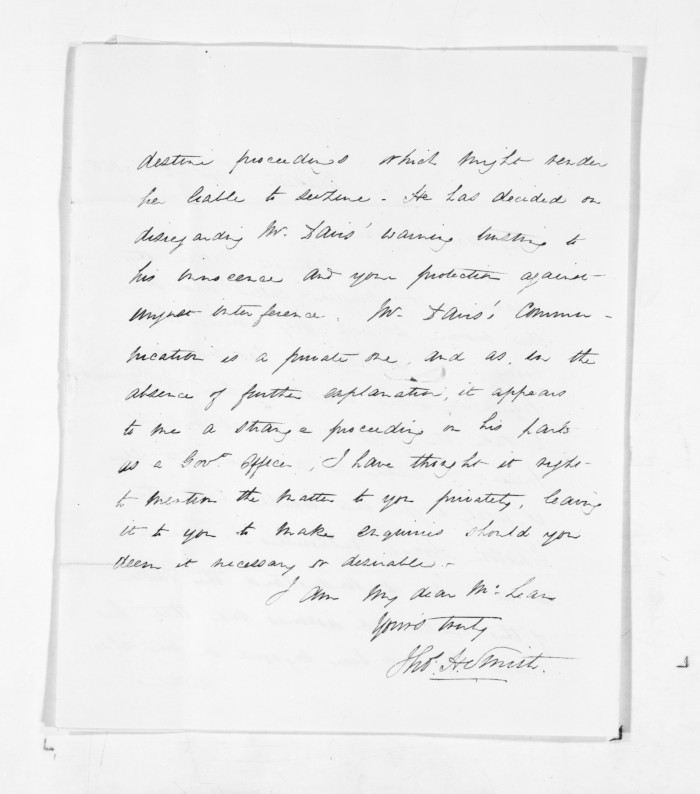 destine proceedings which might render
her liable to seizure. He has decided on
disregarding Mr. Davis' warning trusting to
his innocence and your protection against
unjust interference. Mr. Davis's Commu-
nication is a private one, and as, in the
absence of further explanation, it appears
to me a strange proceeding on his part
as a Govt. Officer, I have thought it right
to mention the matter to you privately, leaving
it to you to make enquiries should you
deem it necessary or desirable.
I am My dear McLean
Yours truly
Thos. H. Smith.